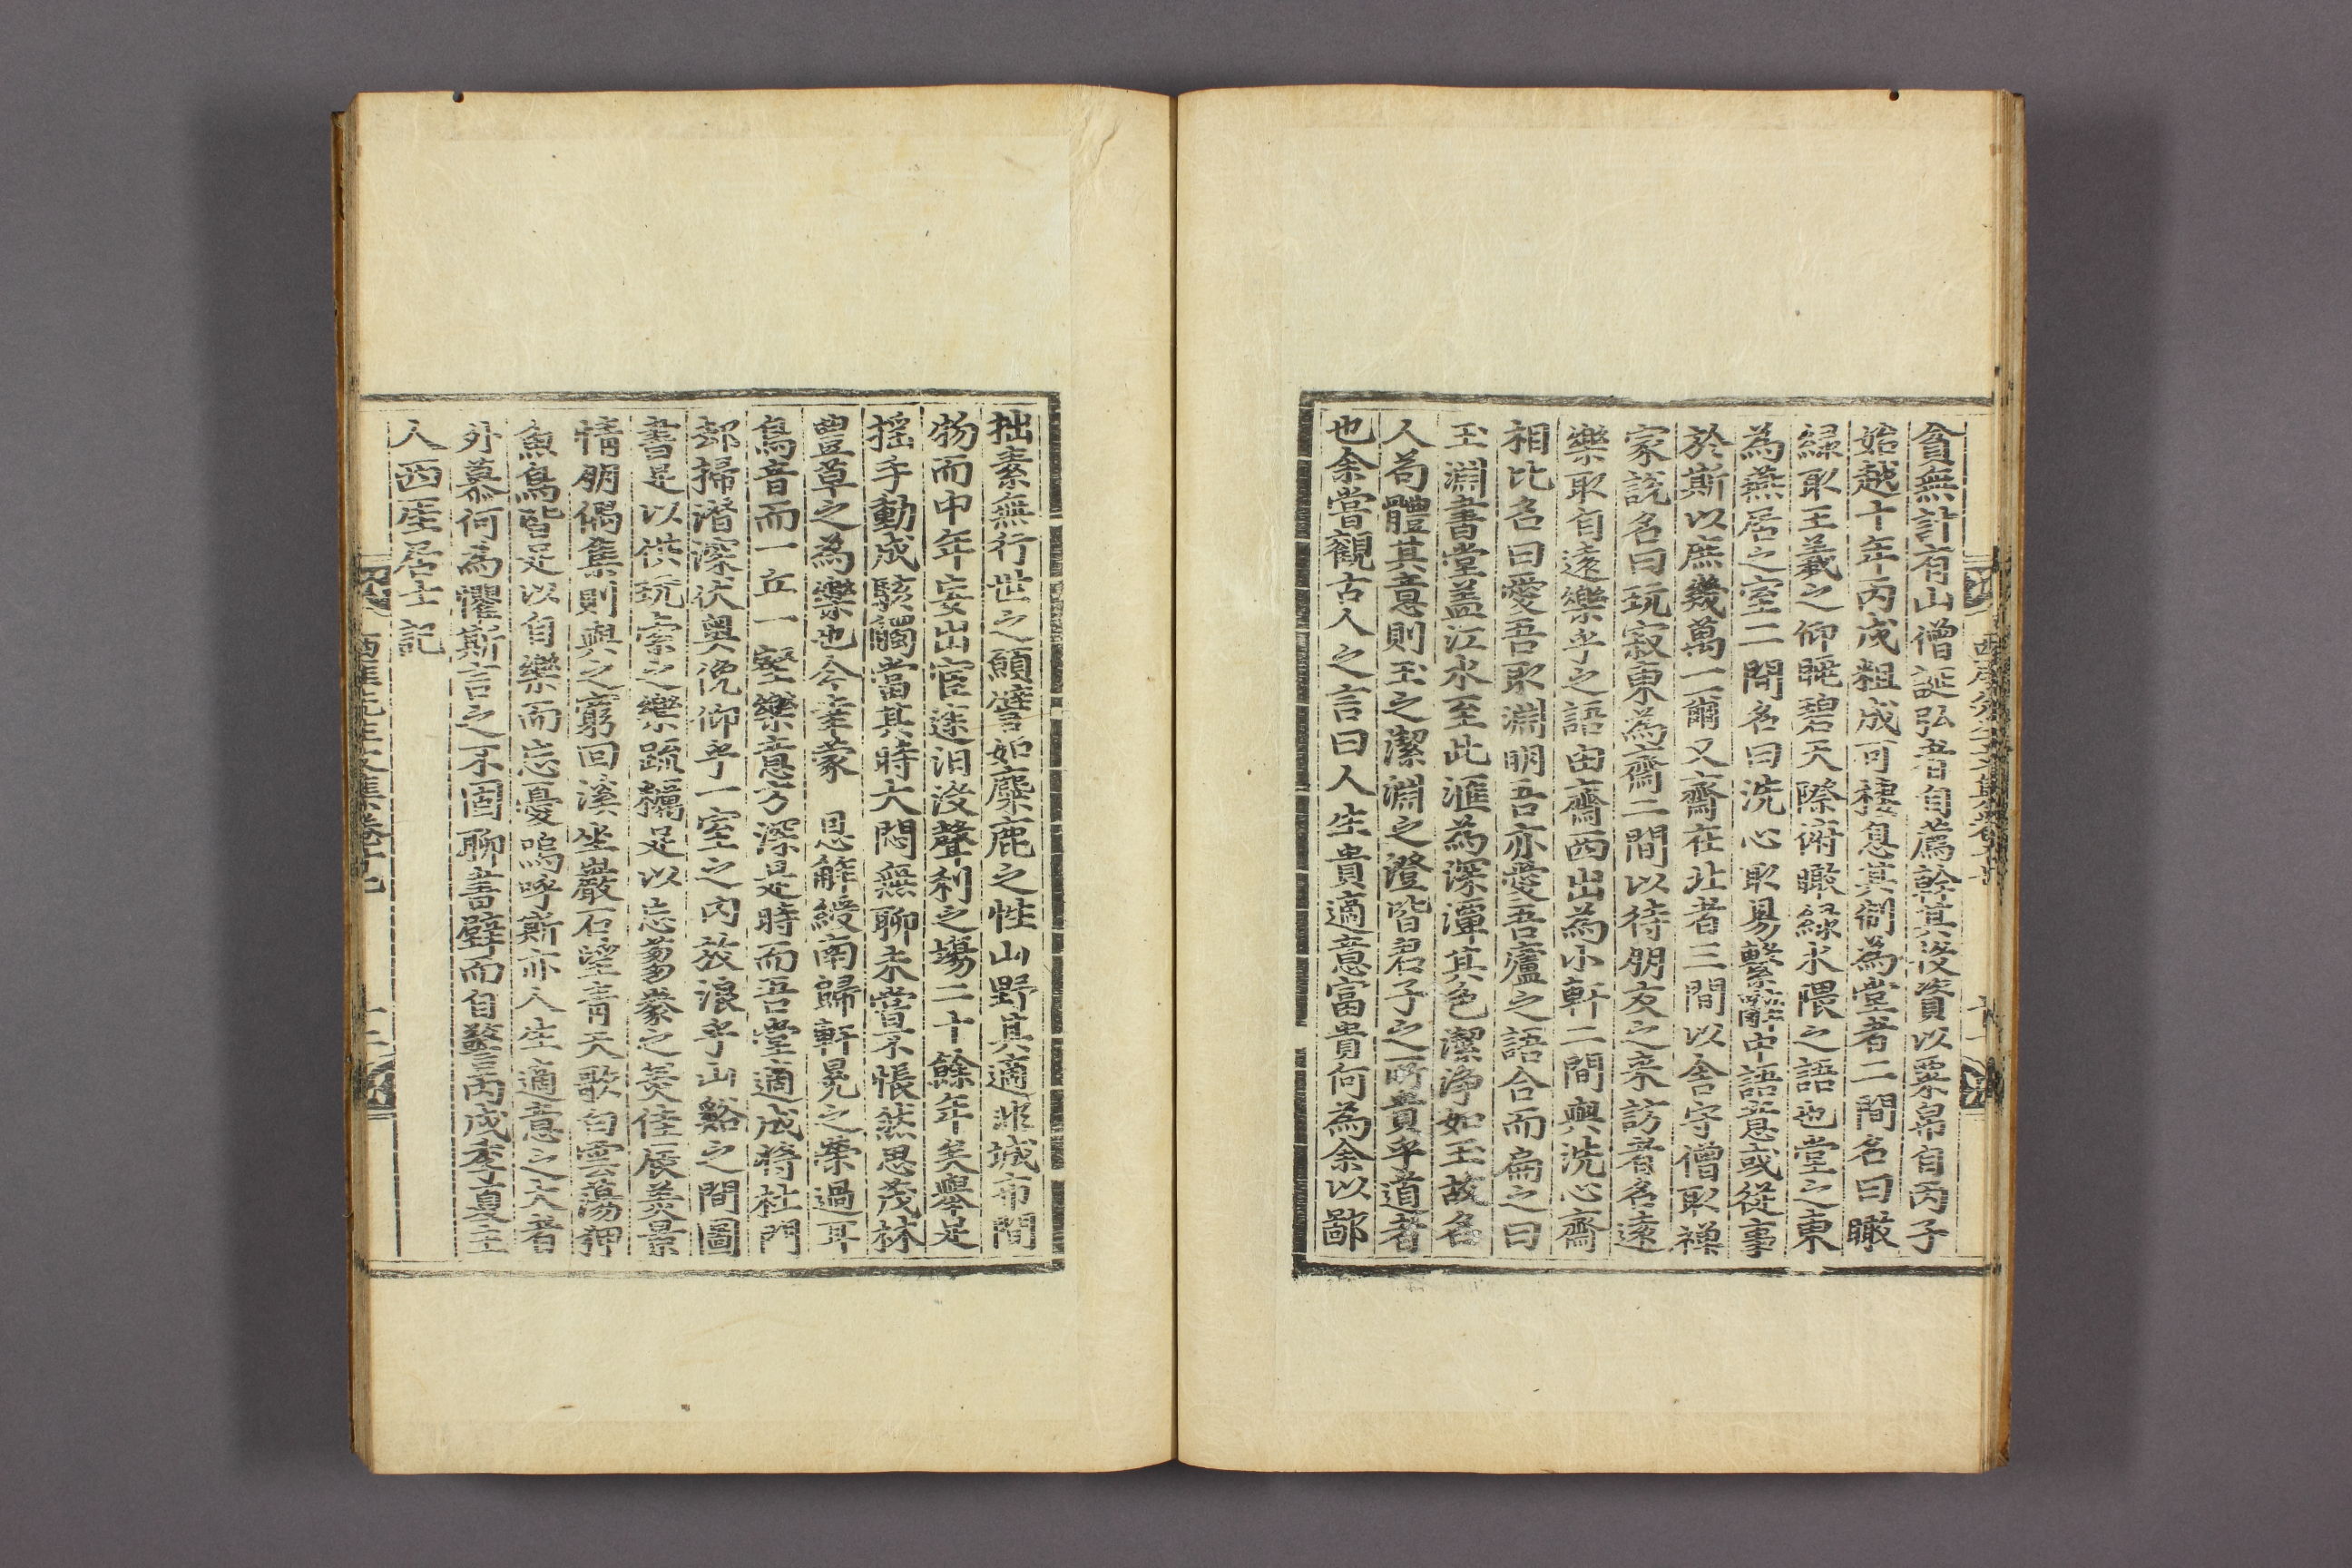 貪無計有山僧誕弘者自薦幹其役資以粟帛自丙子
始越十年丙戌粗成可棲息其制為堂者二間名曰瞰
綠取王羲之仰眺碧天際俯瞰綠水隈之語也堂之東
為燕居之室二間名曰洗心取易繫辭中語意或從事
於斯以庶幾萬一爾又齋在北者三間以舍守僧取禪
家說名曰玩寂東為齋二間以待朋友之來訪者名遠
樂取自遠樂乎之語由齋西出為小軒二間與洗心齋
相比名曰愛吾取淵明吾亦愛吾廬之語合而扁之曰
玉淵書堂盖江水至此滙為深潭其色潔淨如玉故名
人苟體其意則玉之潔淵之澄皆君子之所貴乎道者
也余嘗觀古人之言曰人生貴適意富貴何為余以鄙
拙素無行世之願譬如麋鹿之性山野其適非城市間
物而中年妄出宦途汨沒聲利之場二十餘年矣舉足
揺手動成駭觸當其時大悶無聊未嘗不悵然思茂林
豊草之為樂也今幸蒙 恩解綬南歸軒冕之榮過耳
鳥音而一丘一壑樂意方深是時而吾堂適成將杜門
却掃潛深伏奧俛仰乎一室之內放浪乎山谿之間圖
書足以供玩索之樂疏糲足以忘蒭豢之美佳辰美景
情朋偶集則與之窮回溪坐巖石望青天歌白雲蕩狎
魚鳥皆足以自樂而忘憂嗚呼斯亦人生適意之大者
外慕何為懼斯言之不固聊書壁而自警丙戌季夏主
人西厓居士記
西厓先生文集卷十七
十二